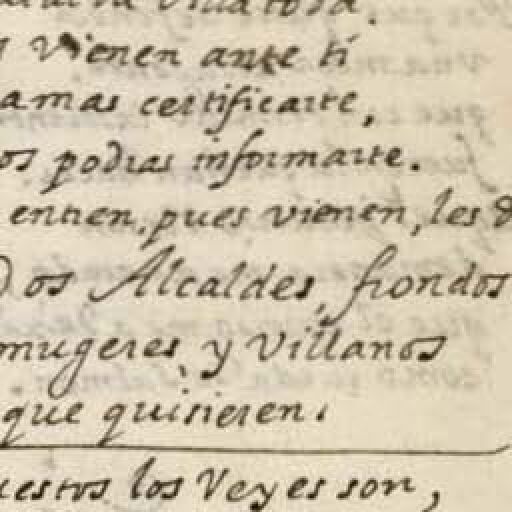 villa toda.
vienen ante ti
amas certificarte,
os podras informarte.
entren, pues vienen, les d
Dos Alcaldes, frondos
mugeres, y villanos
que quisieren.
estos los Reyes son,